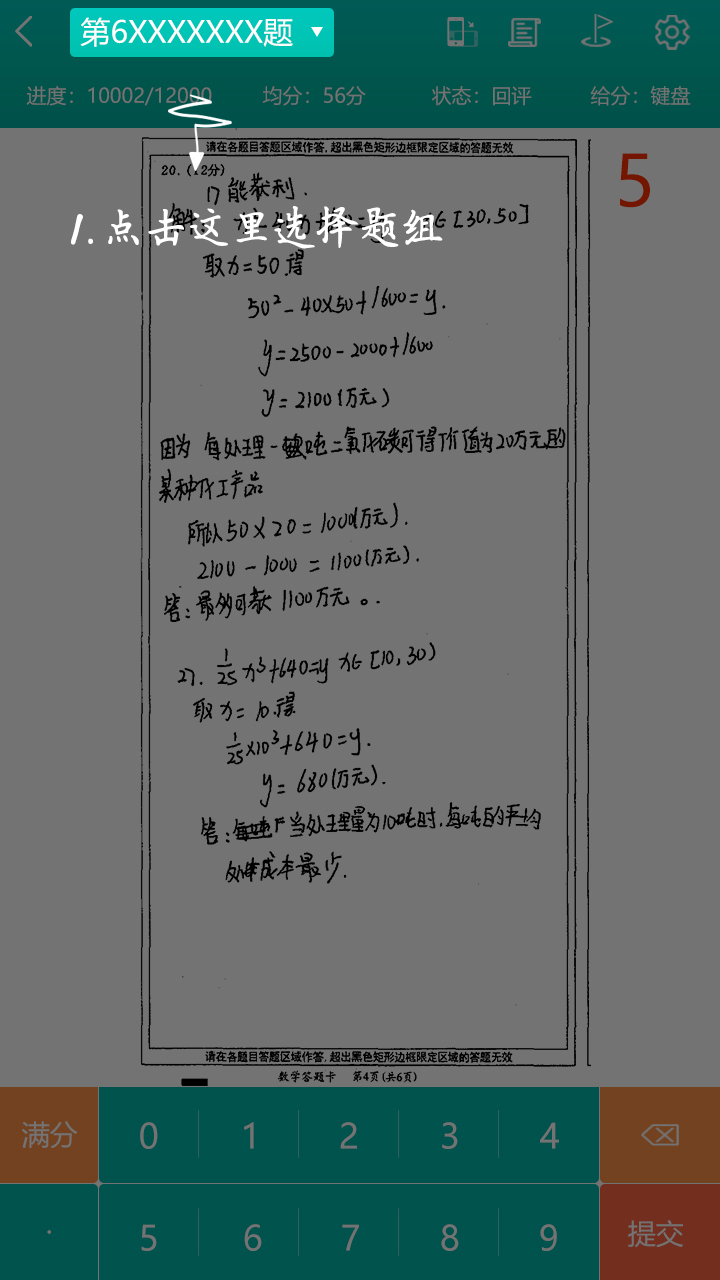 第6XXXXXXX题
进度：10002/12000 均分：56分 状态：回评 给分：键盘
请在各题目答题区域作答，超出黑色矩形边框限定区域的答题无效
5
20．(12分)
1) 能获利．
1.点击这里选择题组
∈[30,50]
取x=50得
50²-40×50+1600=y.
y=2500-2000+1600
y=2100(万元)
因为 每处理一吨二氧化碳可得价值为20万元的
某种化工产品
所以50×20=1000(万元).
2100-1000=1100(万元).
答：最多可获 1100万元。.
27. 1/25 x³+640=y x∈[10,30)
取x=10.得
1/25×10³+640=y.
y=680(万元).
答： 当处理量为10吨时，每吨的平均
成本最少.
请在各题目答题区域作答，超出黑色矩形边框限定区域的答题无效
数学答题卡 第4页(共6页)
满分 0 1 2 3 4
. 5 6 7 8 9 提交